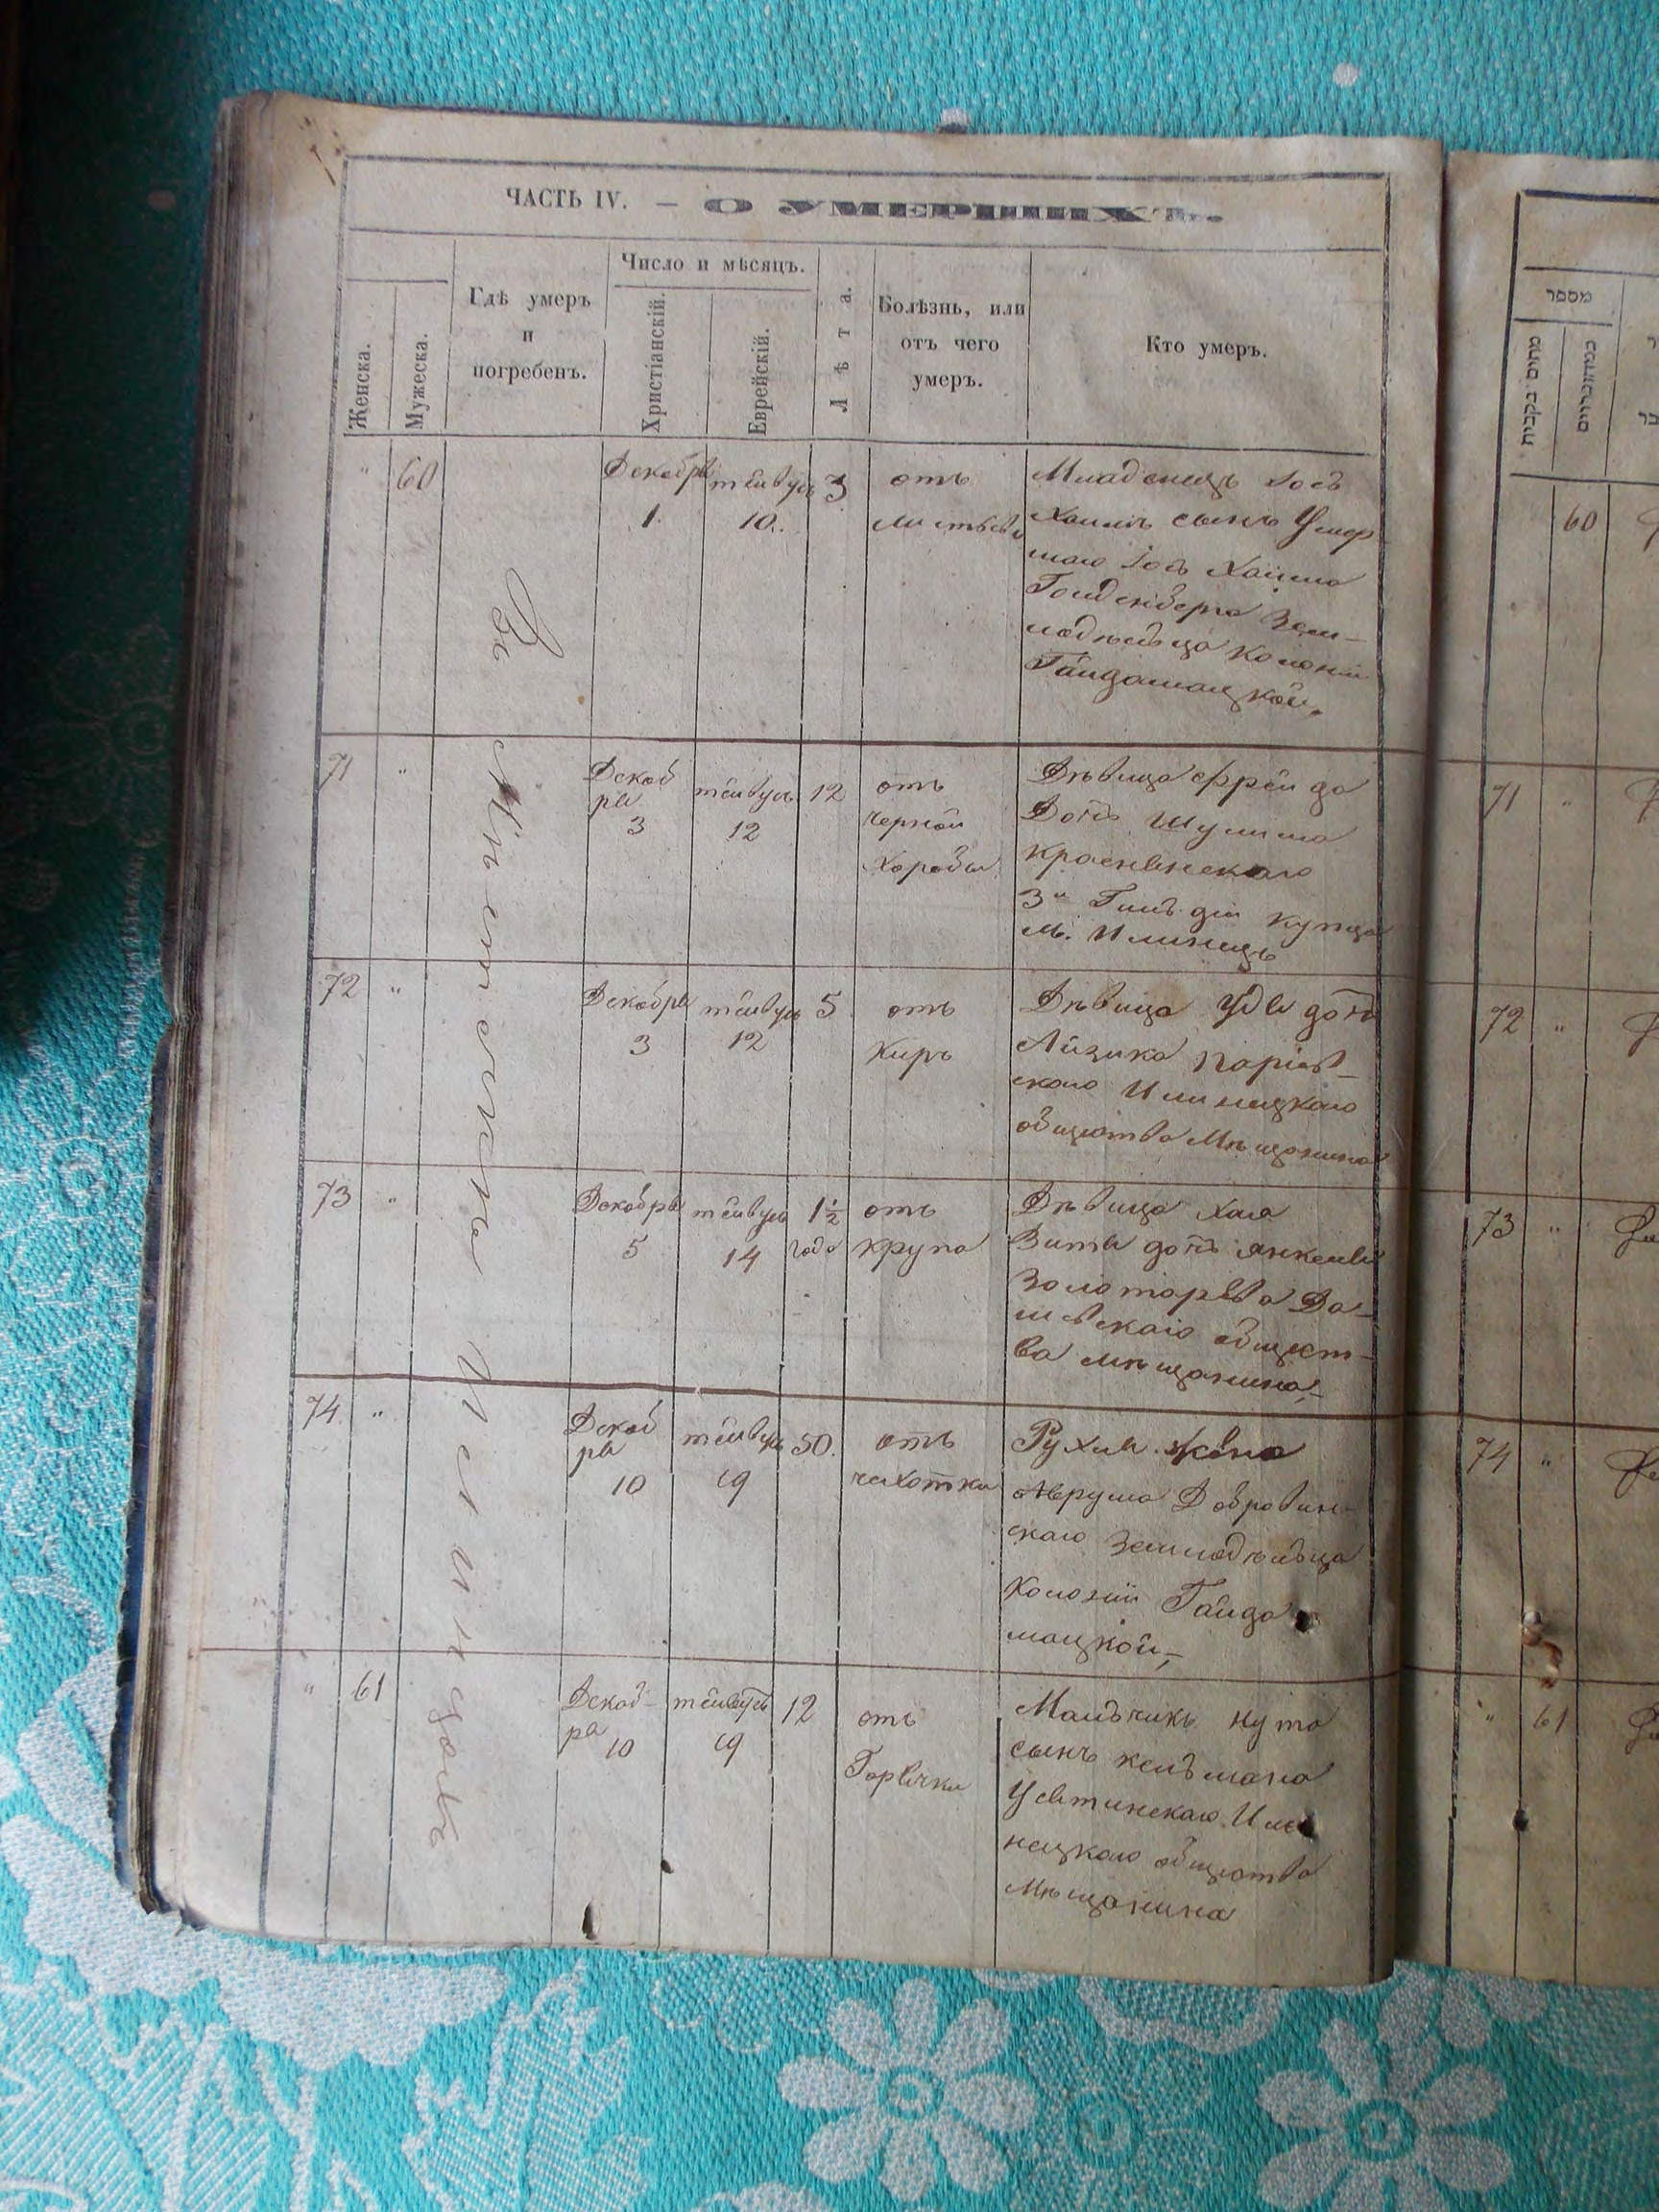 ЧАСТЬ IV. — О УМЕРШИХЪ.
Женска.
Мужеска.
Гдѣ умеръ
и
погребенъ.
Число и мѣсяцъ.
Христіанскій.
Еврейскій.
Лѣта.
Болѣзнь, или
отъ чего
умеръ.
Кто умеръ.
Въ Мѣстечкѣ Илинцахъ
" 60
Декабря
1.
тейвусъ
10.
3
отъ
Младенецъ Іосъ
Хаимъ сынъ Умер-
шаго Іосъ Хаима
Голденберга Зем-
ледѣльца Колоніи
Гайдамацкой.
71 "
Декаб
ря
3
тейвусъ
12
12
отъ
черной
Хоробы
Дѣвица Фрейда
Дочь Шулима
Краснянскаго
3й Гильдіи Купца
м. Илинецъ
72 "
Декабря
3
тейвусъ
12
5
отъ
Киръ
Дѣвица Удя дочь
Айзика Паріев-
скаго Илинецкаго
общества Мѣщанина
73 "
Декабря
5
тейвусъ
14
1½
года
отъ
крупа
Дѣвица Хая
Зитя дочь Янкеля
Золотарева Да-
шевскаго общест-
ва мѣщанина,-
74 "
Декаб
ря
10
тейвусъ
19
50.
отъ
чахотки
Рухля жена
Аврума Добровин-
скаго Земледѣльца
Колоніи Гайда
мацкой,-
" 61
Декаб-
ря
10
тейвусъ
19
12
отъ
Горячки
Мальчикъ Нута
сынъ Кельмана
Устинскаго Или
нецкаго общества
Мѣщанина
מספר
60
71 "
72 "
73 "
74 "
" 61